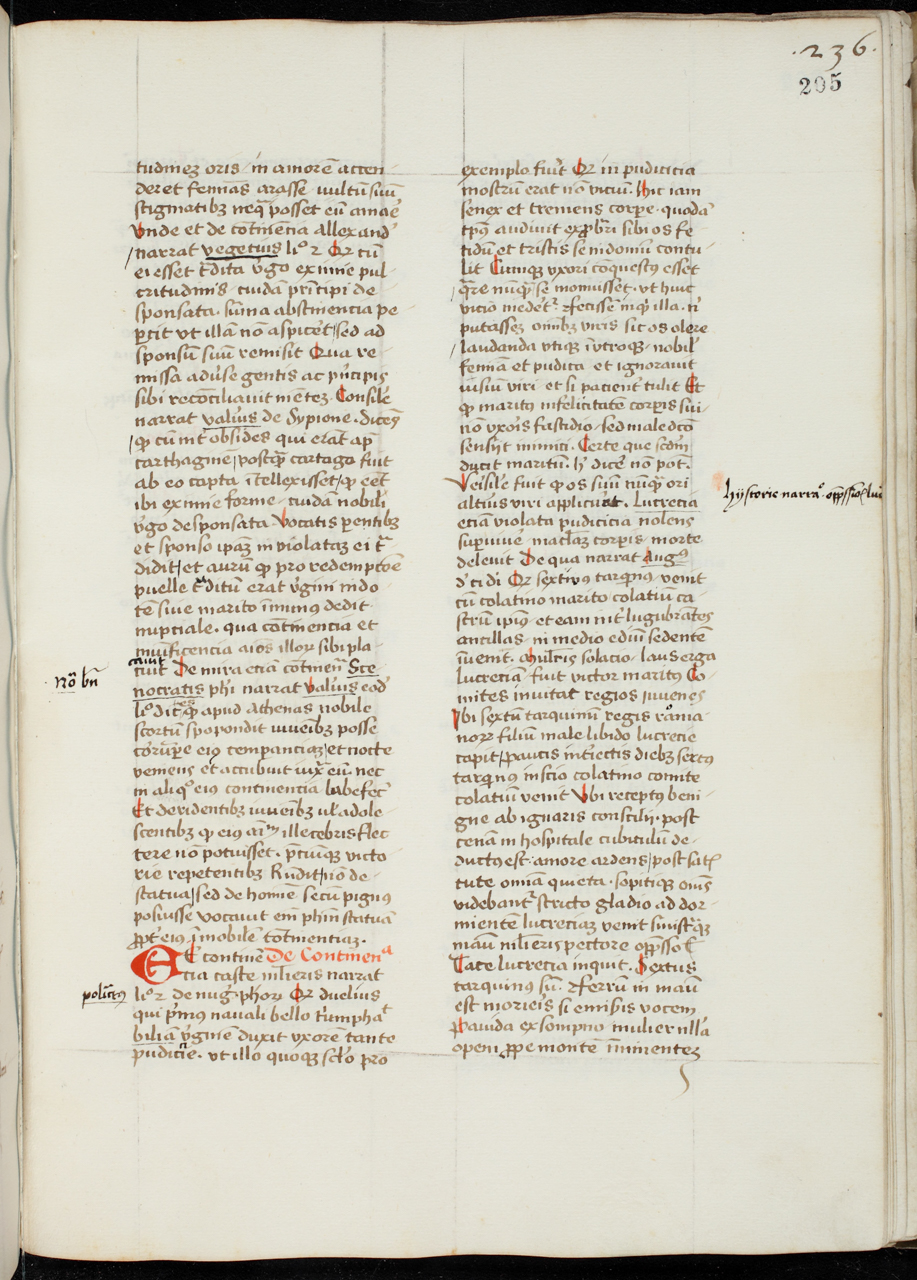 .236.
205
tudinez oris · in amorē accen
deret feminas arasse vultū suū
stigmatibꝫ neqꝫ posset eū amaē
Unde et de cōtinēcia allexand'
narrat vegecius li° 2 Qr cū
ei esset t̄dita v̄go eximie pul
critudinis cuidā prīcipi de
sponsata · sūma abstinencia pe
ꝑcit vt illā nō aspicēt / sed ad
sponsū suū remisit Qua re
missa adūse gentis ac pⁱncipis
sibi reconciliavit mētez · Consilē
narrat valiꝰ de Sypione · dicēs
ꝙ cū int̄ obsides qui erāt apᵭ
carthaginē / postqᷓ cartago fuit
ab eo capta ītellexisset / ꝙ eēt
ibi eximie forme · cuidā nobili
v̄go desponsata Vocatis ꝑentibꝫ
et sponso ipaꝫ inviolataꝫ ei tᷓ
didit / et aurū ꝙ pro redempcōe
puelle tᷓditū erat v̄gini in do
tē sive marito īmunꝰ dedit
nupciale · qua cōtinencia et
munificencia aīos illoꝝ sibi pla
cuit De mira eciā cōtinēn Sce
Nō bn̄
nocratis phi narrat valiꝰ eod'
li° dicēs ꝙ apud Athenas nobile
scortū spopondit iuveibꝫ posse
corūpe eiꝰ temperanciaꝫ / et nocte
veniens et accubuit iuxᷓ eū nec
in aliqº eiꝰ continencia labefec̄
Et deridentibꝫ iuveibꝫ ul' adole
scentibꝫ ꝙ eiꝰ aīm illecebris flec
tere nō potuisset · p̄ciūqꝫ victo
rie repetentibꝫ Rn̄dit / nō de
statua / sed de homīe secū pignꝰ
posuisse vocavit em̄ phm̄ statuā
ꝓpt̄ eiꝰ īmobilē cōtinentiaꝫ ·
De Continenᵃ
Et continē
cia caste mlieris narrat
policrꝰ
li° 2 de nug' phoꝝ Qr duelius
qui pⁱmꝰ navali bello tⁱumphaᵗ
biliā v̄ginē duxit vxorē tante
pudicie · vt illo quoqꝫ sclo pro
exemplo fuīt Qr in pudicicia
mostrū erat nō viciū · Hic iam
senex et tremens corꝑe · quodā
tꝑe audivit exꝓbri sibi os fe
tidū et tristis se in domū contu
lit Cumqꝫ vxori coquestꝰ esset
qᷓre nūqᷓ se monuisset · vt huic
vicio medet' · ℞ fecissē inqᵗ illa · ni
putassez om̄ibꝫ viris sic os olere
laudanda vtiqꝫ ī vtroqꝫ · nobil'
femīa et pudica et ignoravit
visiū viri · et si pacient' tulit Et
ꝙ maritꝰ infelicitatē corꝑis sui
nō vxoīs fastidio · sed maledcō
sensijt inimici · Certe que scdm
ducit maritū · h' dicē nō pot ·
Verisile fuit ꝙ os suū nūqᷓ ori
altiꝰ viri applicuit · Lucrecia
hystorie narraᵒ · oppssioꝫ luc
eciā violata pudicicia nolens
suꝑvivē · maclaꝫ corꝑis morte
delevit De qua narrat Augꝰ
d' ci di Qr sextⁱꝰ tarqnꝰ · venit
cū colatino marito colatiū ca
strū ipiꝰ et eam int' lugubrātes
ancillas · in medio ediū sedentē
īvenit · Mulⁱeris solacio · laus erga
lucreciā fuit victor maritꝰ Co
mites invitat regios iuvenes
Vbi sextū tarquinū regis roma
noꝝ filiū male libido lucrecie
capit / paucis intⁱectis diebꝫ sextꝰ
tarqnꝰ inscio colatino comite
colatiū venit Vbi receptꝰ beni
gne ab ignaris conscilij · post
cenā in hospitale cubiculū de
ductꝰ est · amore ardens / post sat̄
tute omīa quieta · sopitiqꝫ om̄s
videbant' stricto gladio ad dor
mientē lucreciaꝫ venit sinistᷓqꝫ
māu mlieris pectore oppsso
Tace lucrecia inquit · Sextus
tarquinꝰ sū · ℞ ferrū in māu
est morieris si emihis vocem
Pavida ex sompno mulier nllā
openi ꝓpe mortē īminentez